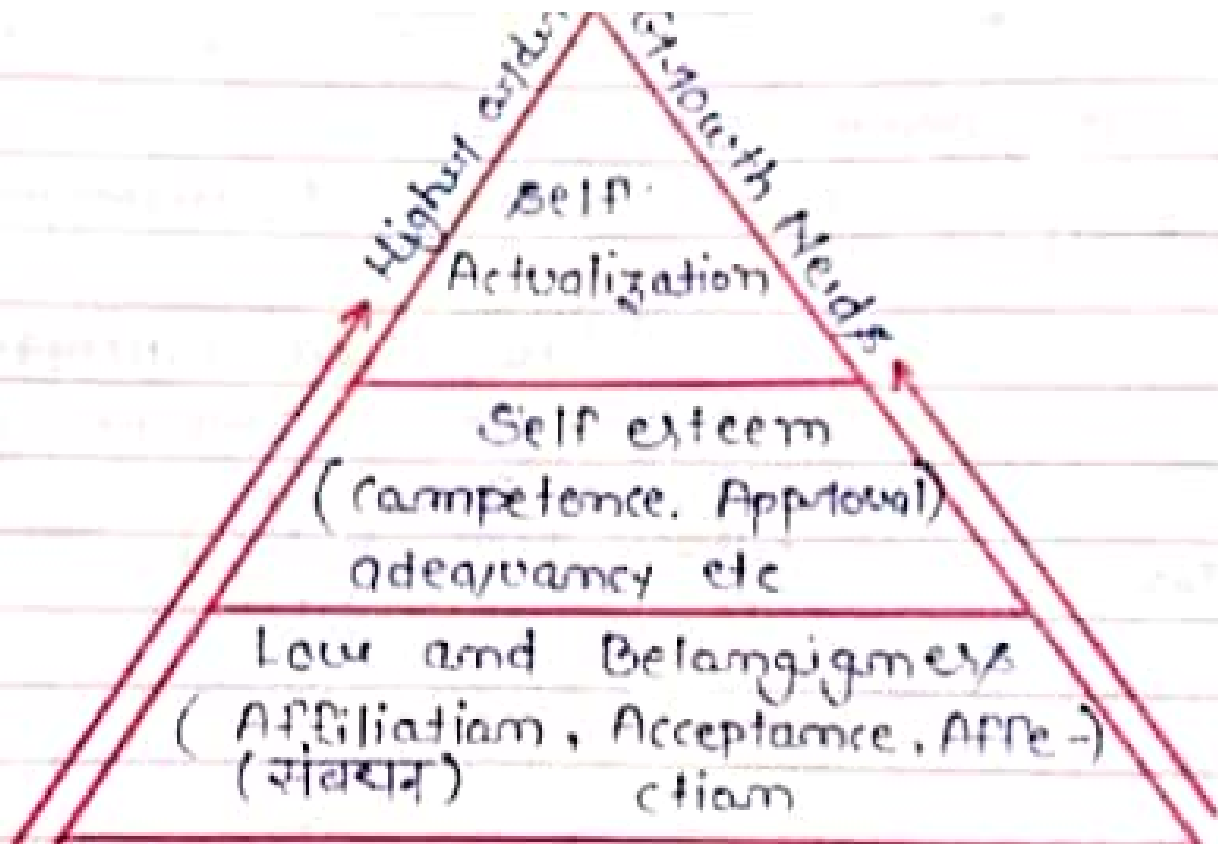 Higher orde
Growth Needs
Self
Actualization
Self esteem
(Competence. Approval)
adequancy etc
Love and Belongigness
(Affiliation, Acceptance, Affe-)
(संवधन) ction